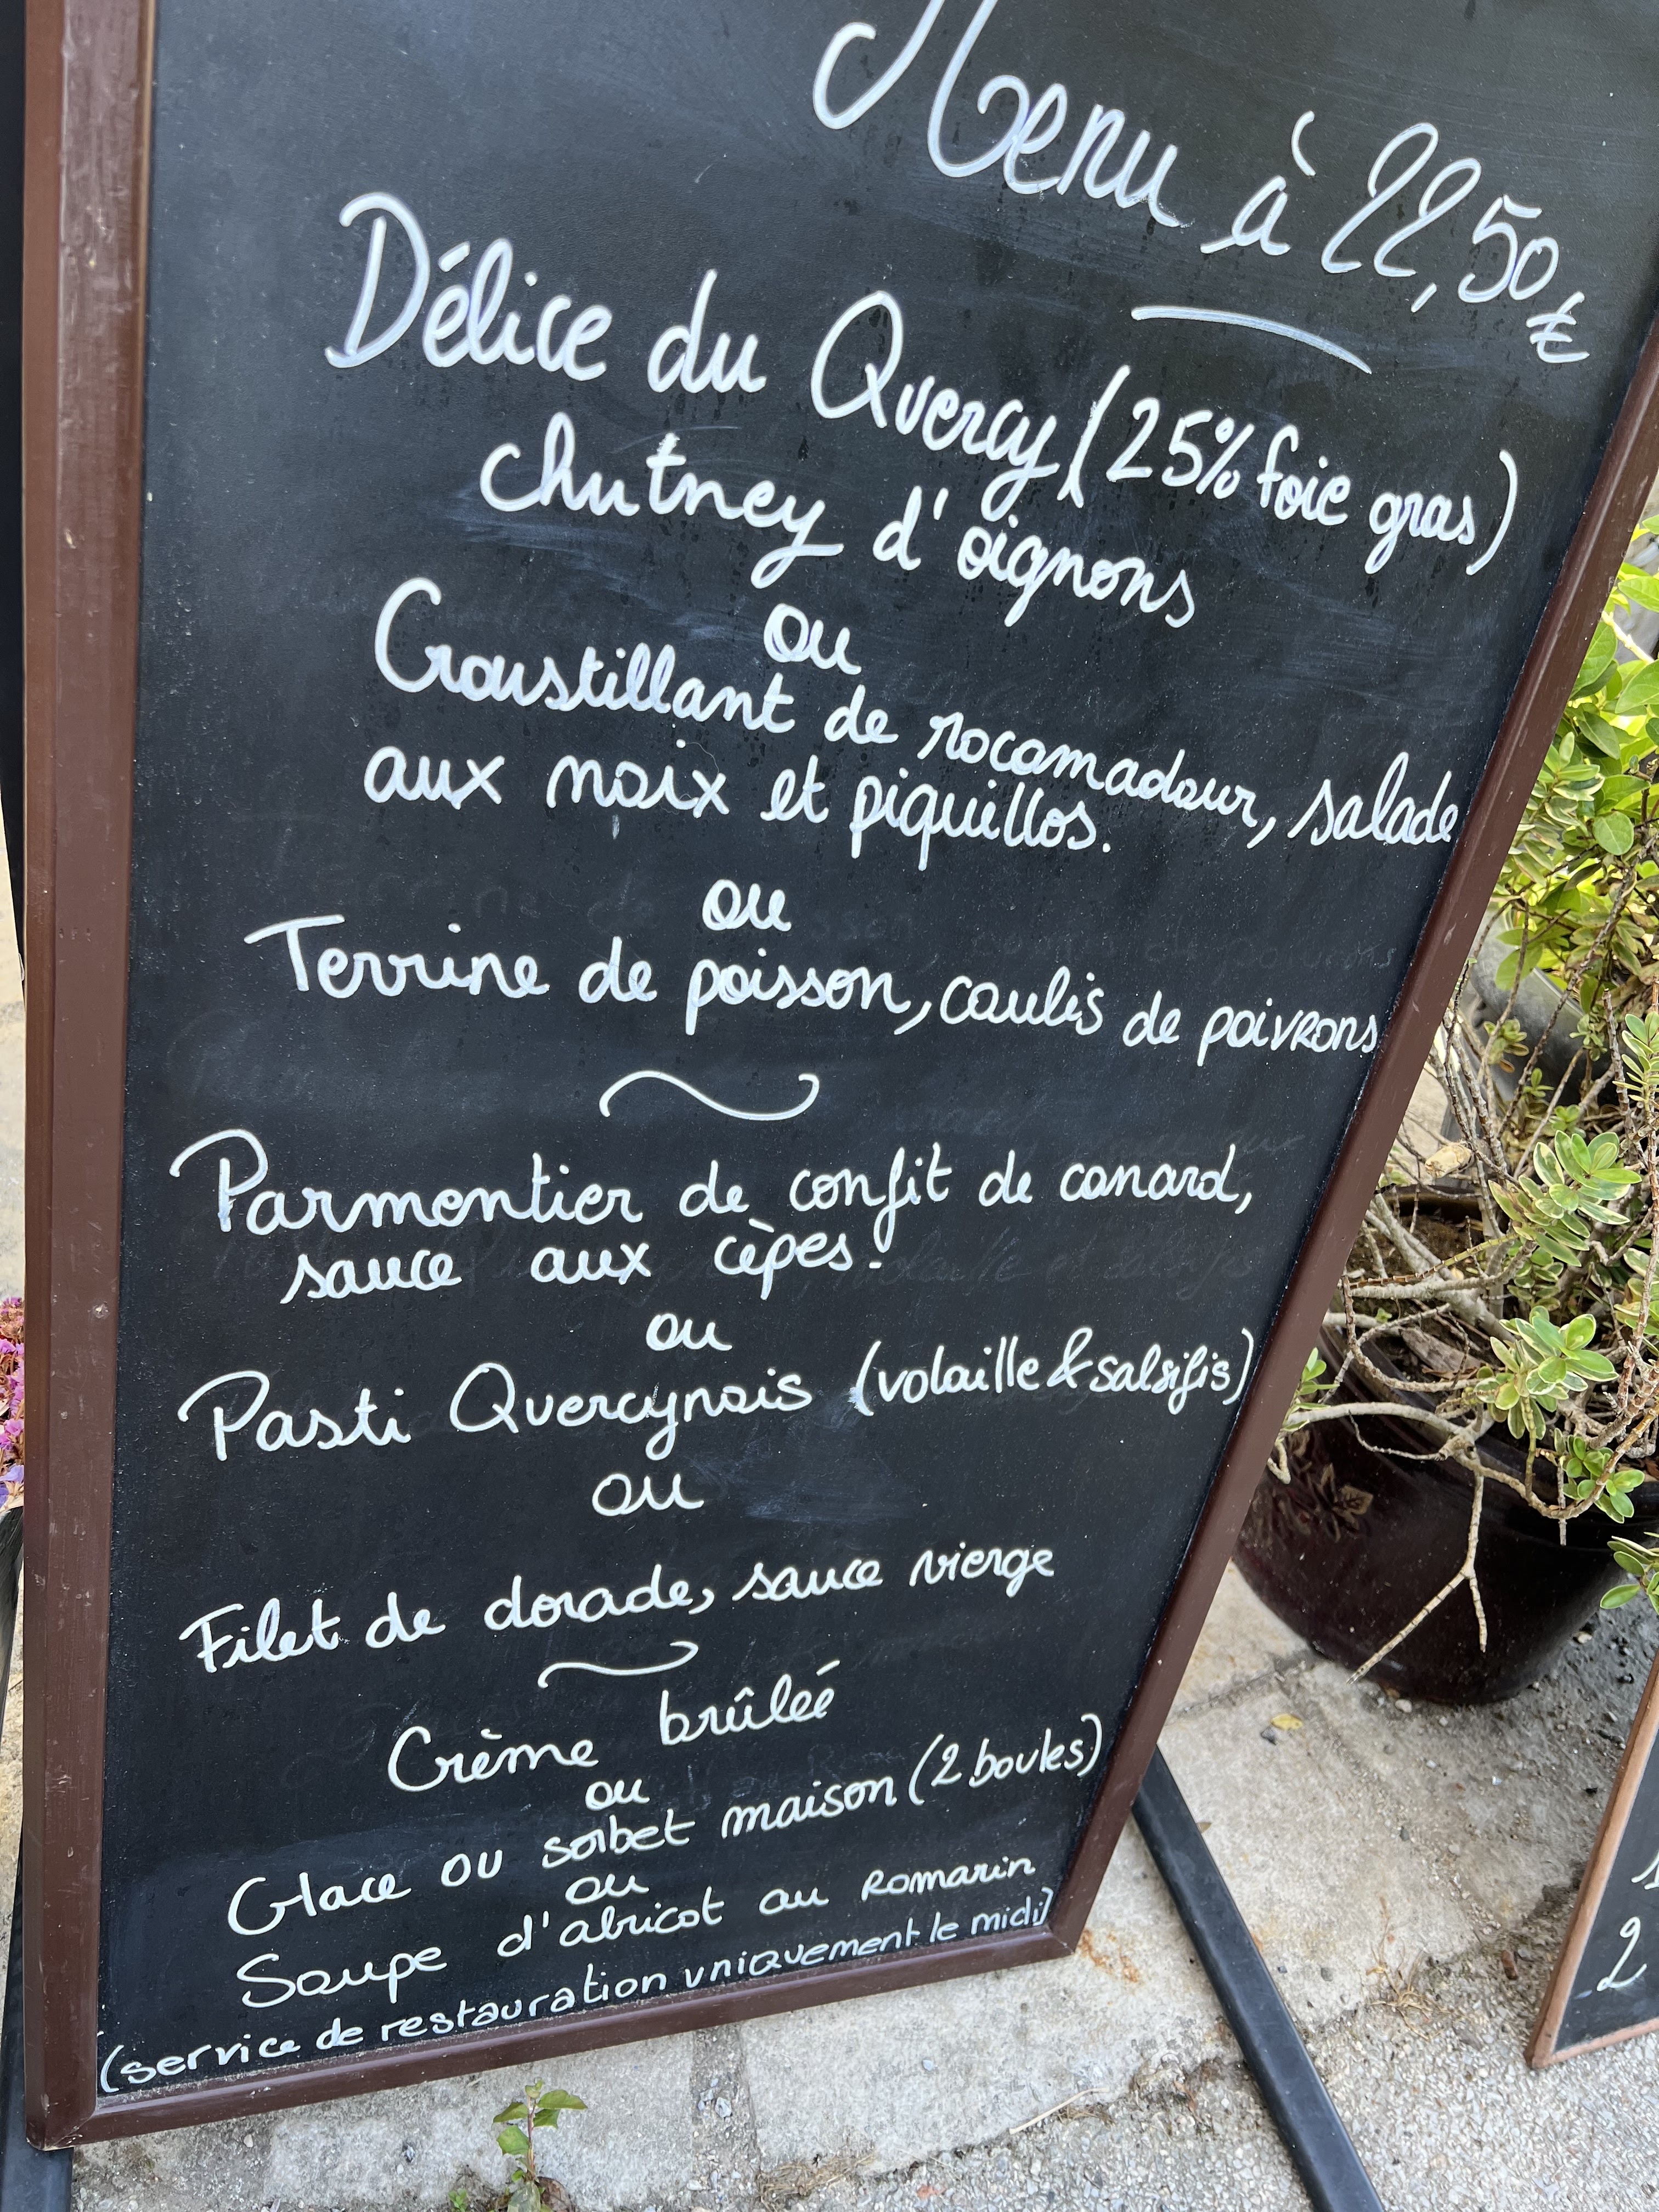 Menu à 22,50€
Délice du Quercy (25% foie gras)
chutney d'oignons
ou
Croustillant de rocamadour, salade
aux noix et piquillos.
ou
Terrine de poisson, coulis de poivrons
Parmentier de confit de canard,
sauce aux cèpes.
ou
Pasti Quercynois (volaille & salsifis)
ou
Filet de dorade, sauce vierge
Crème brûlée
ou
Glace ou sorbet maison (2 boules)
ou
Soupe d'abricot au Romarin
(service de restauration uniquement le midi)
2